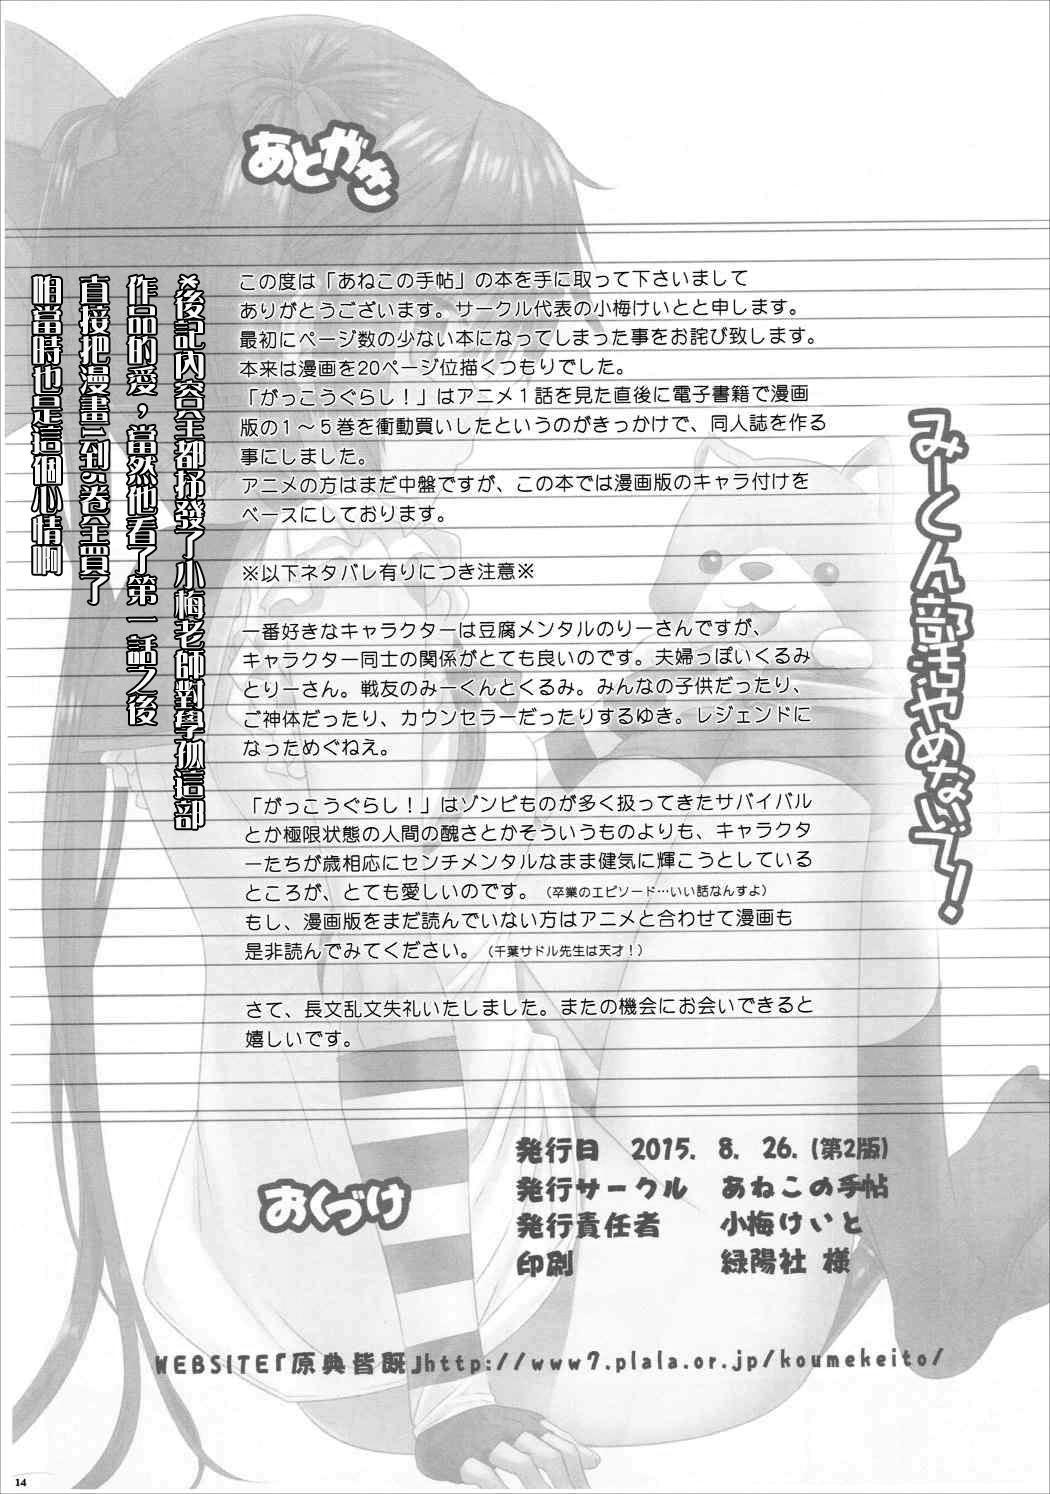 あとがき
この度は「あねこの手帖」の本を手に取って下さいまして
ありがとうございます。サークル代表の小梅けいとと申します。
最初にページ数の少ない本になってしまった事をお詫び致します。
本来は漫画を20ページ位描くつもりでした。
「がっこうぐらし！」はアニメ１話を見た直後に電子書籍で漫画
版の１～５巻を衝動買いしたというのがきっかけで、同人誌を作る
事にしました。
アニメの方はまだ中盤ですが、この本では漫画版のキャラ付けを
ベースにしております。
※以下ネタバレ有りにつき注意※
一番好きなキャラクターは豆腐メンタルのりーさんですが、
キャラクター同士の関係がとても良いのです。夫婦っぽいくるみ
とりーさん。戦友のみーくんとくるみ。みんなの子供だったり、
ご神体だったり、カウンセラーだったりするゆき。レジェンドに
なっためぐねえ。
「がっこうぐらし！」はゾンビものが多く扱ってきたサバイバル
とか極限状態の人間の醜さとかそういうものよりも、キャラクタ
ーたちが歳相応にセンチメンタルなまま健気に輝こうとしている
ところが、とても愛しいのです。（卒業のエピソード…いい話なんすよ）
もし、漫画版をまだ読んでいない方はアニメと合わせて漫画も
是非読んでみてください。（千葉サドル先生は天才！）
さて、長文乱文失礼いたしました。またの機会にお会いできると
嬉しいです。
みーくん部活やめないで！
※後記內容全都抒發了小梅老師對學孤這部
作品的愛，當然他看了第一話之後
直接把漫畫1到5卷全買了
怕當時也是這個心情啊
おくづけ
発行日 2015. 8. 26.(第2版)
発行サークル あねこの手帖
発行責任者 小梅けいと
印刷 緑陽社 様
WEBSITE『原典皆既』http://www7.plala.or.jp/koumekeito/
14